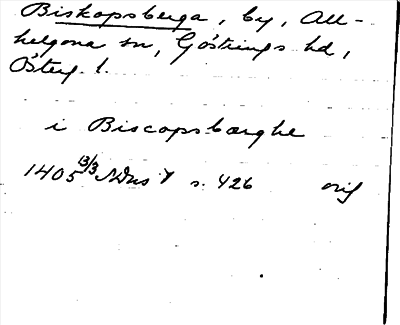 Biskopsberga, by, All-
helgona sn, Göstrings hd,
Österg. l.
i Biscopsbærghe
1405 13/3 SDns I s. 426 orig